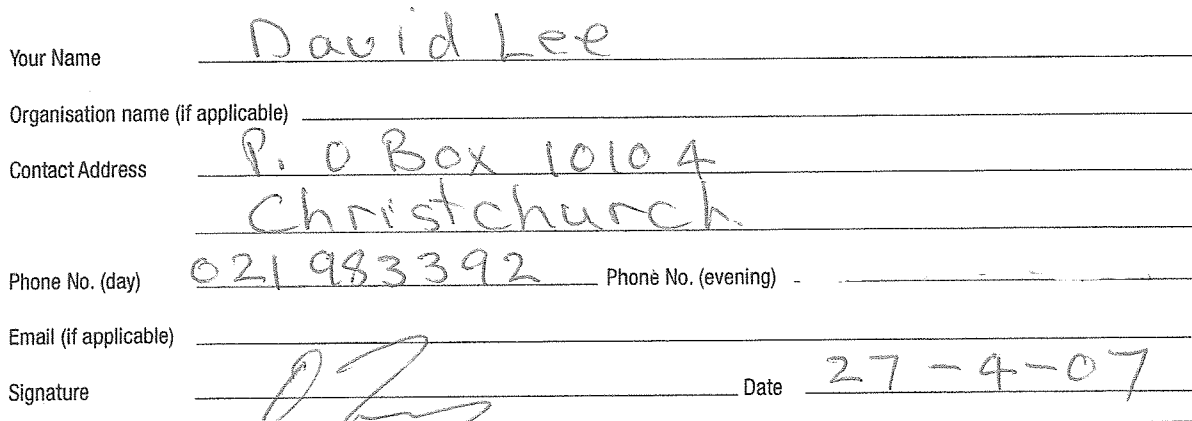 Your Name David Lee
Organisation name (if applicable)
Contact Address P. O Box 10104
Christchurch
Phone No. (day) 021 983392 Phone No. (evening)
Email (if applicable)
Signature Date 27-4-07